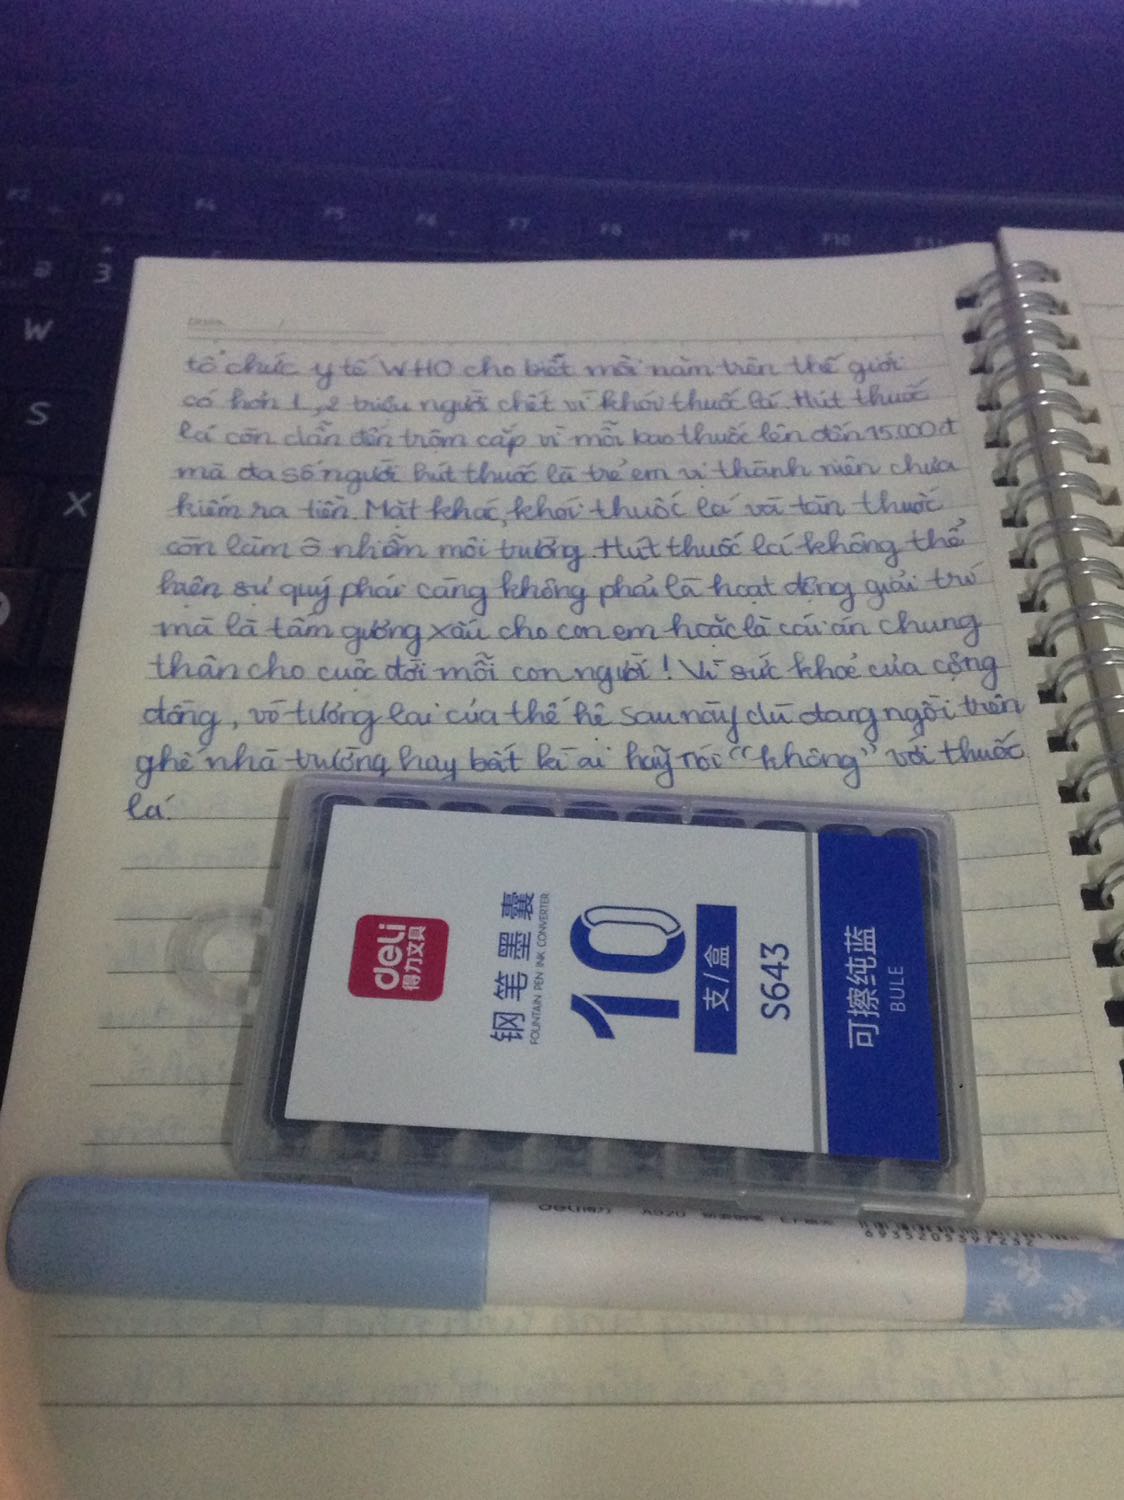 F2 F3 F4 F5 F6 F7 F8 F9 F10 F11
3
W
S
X
tổ chức y tế WHO cho biết mỗi năm trên thế giới
có hơn 1,2 triệu người chết vì khói thuốc lá. Hút thuốc
lá còn dẫn đến trộm cắp vì mỗi bao thuốc lên đến 15.000đ
mà đa số người hút thuốc là trẻ em vị thành niên chưa
kiếm ra tiền. Mặt khác, khói thuốc lá và tàn thuốc
còn làm ô nhiễm môi trường. Hút thuốc lá không thể
hiện sự quý phái càng không phải là hoạt động giải trí
mà là tấm gương xấu cho con em hoặc là cái án chung
thân cho cuộc đời mỗi con người! Vì sức khoẻ của cộng
đồng, vì tương lai của thế hệ sau này dù đang ngồi trên
ghế nhà trường hay bất kì ai hãy nói "không" với thuốc
lá.
deli
得力文具
钢笔墨囊
FOUNTAIN PEN INK CONVERTER
10
支/盒
S643
可擦纯蓝
BULE
deli得力 A020
6935205397232